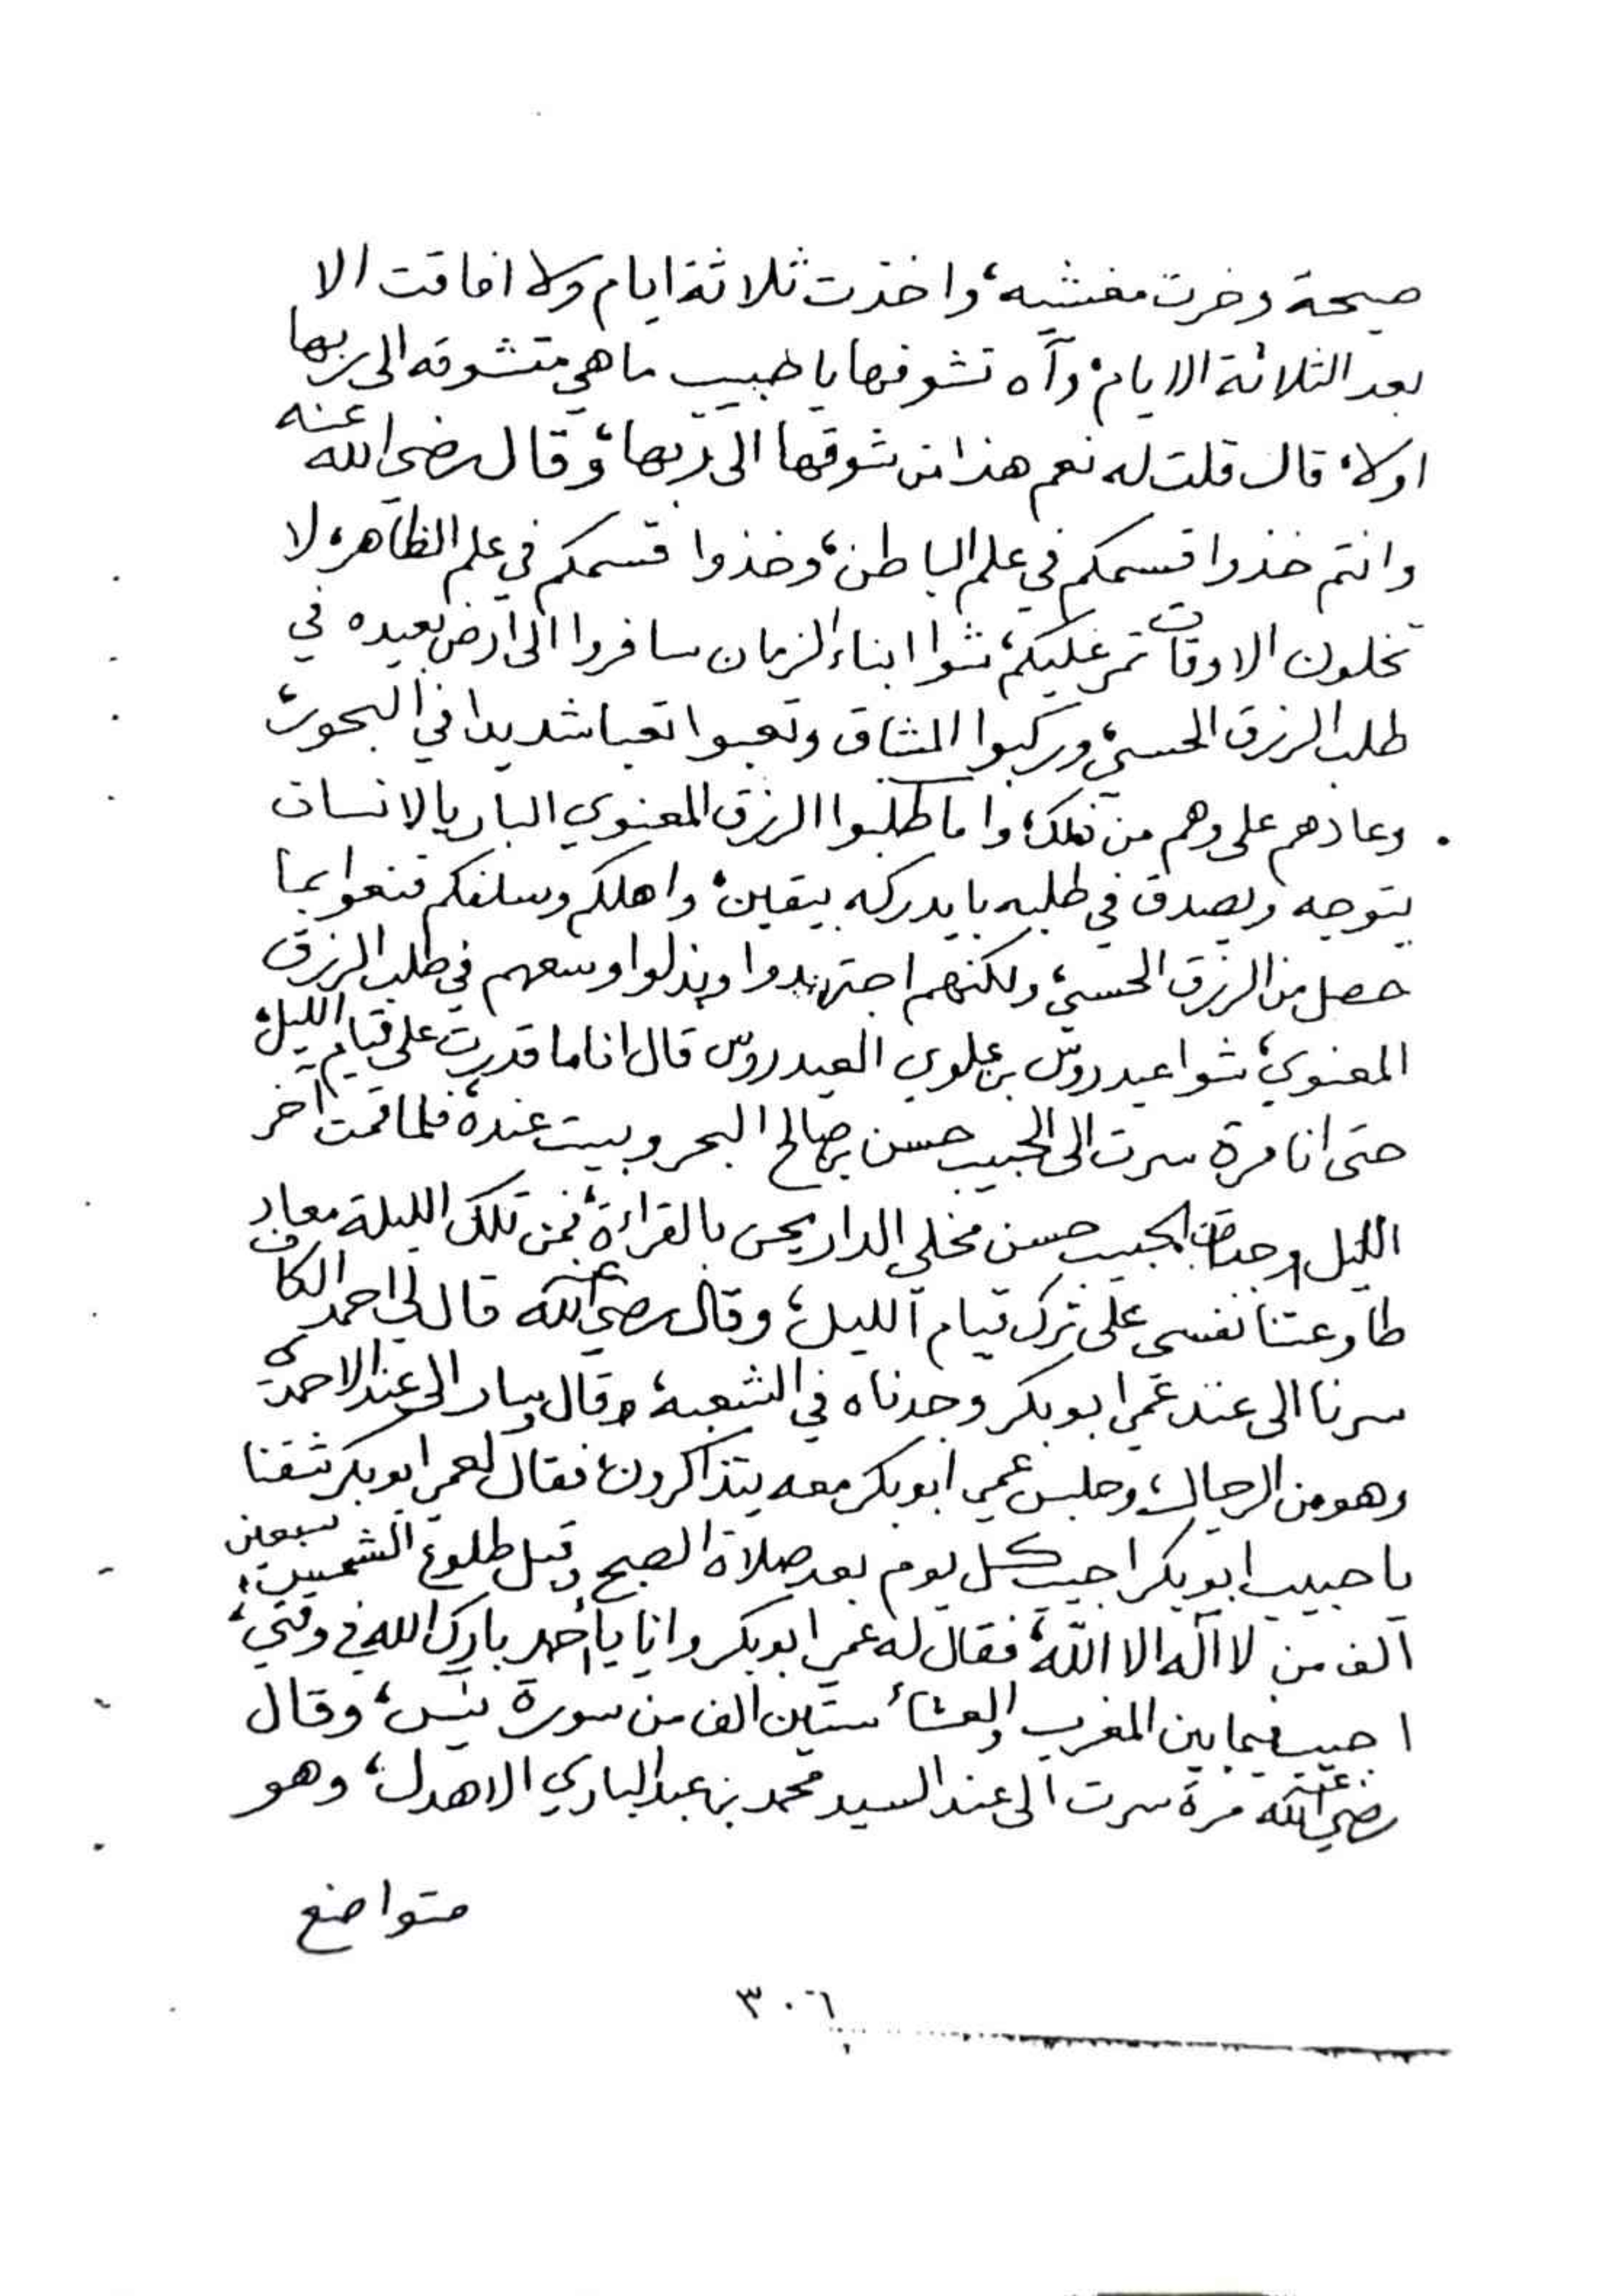 صيحة وخرت مغشيه، واخذت ثلاثة ايام ولا افاقت الا
بعد الثلاثة الايام، وآه تشوفها يا حبيب ما هي متشوقه الى ربها
اولا، قال قلت له نعم هذا من شوقها الى ربها، وقال رضي الله عنه
وانتم خذوا قسمكم في علم الباطن، وخذوا قسمكم في علم الظاهر، لا
تخلون الاوقات تمر عليكم، شوا ابناء الزمان سافروا الى ارض بعيده في
طلب الرزق الحسي، وركبوا المشاق وتعبوا تعبا شديدا في البحور،
وعادهم على وهم من ذلك، واما طلبوا الرزق المعنوي البار بالانسان
يتوجه ويصدق في طلبه بايدركه بيقين، واهلكم وسلفكم قنعوا بما
حصل من الرزق الحسي، ولكنهم اجتهدوا وبذلوا وسعهم في طلب الرزق
المعنوي، شوا عيدروس بن علوي العيدروس قال انا ما قدرت على قيام الليل،
حتى انا مرة سرت الى الحبيب حسن بن صالح البحر وبيت عنده، فلما قمت آخر
الليل وجدت الحبيب حسن مخلي الدار يحن بالقراءة، فمن تلك الليلة معاد
طاوعتنا نفسي على ترك قيام الليل، وقال رضي الله عنه قال لي احمد الكاف
سرنا الى عند عمي ابوبكر وجدناه في الشعبه، وقال سار الى عند الاحمدي
وهو من الرجال، وجلس عمي ابوبكر معه يتذاكرون، فقال لعمي ابوبكر شفنا
يا حبيب ابوبكر اجيب كل يوم بعد صلاة الصبح وقبل طلوع الشمس سبعين
الف من لا اله الا الله، فقال له عمي ابوبكر وانا يا احمد بارك الله في وقتي،
اجيب فيما بين المغرب والعشاء ستين الف من سورة يس، وقال
رضي الله عنه مرة سرت الى عند السيد محمد بن عبدالباري الاهدل، وهو
متواضع
٣٠٦